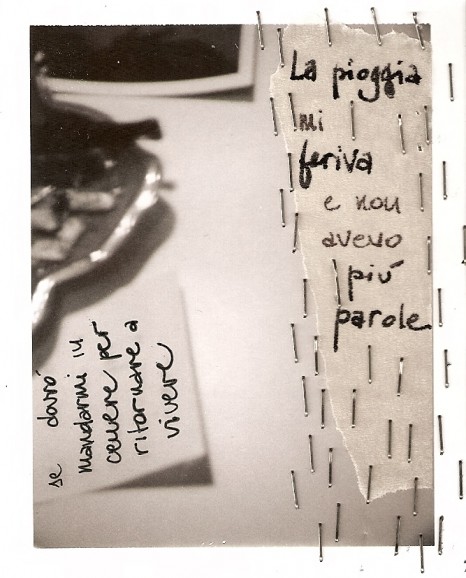 La pioggia
mi
feriva
e non
avevo
più
parole
se dovrò
mandarmi in
cenere per
ritornare a
vivere